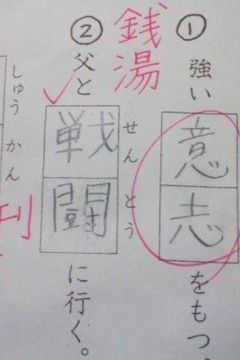 ① 強い意志をもつ。
銭湯
② 父と戦闘に行く。
せんとう
しゅうかん
刊